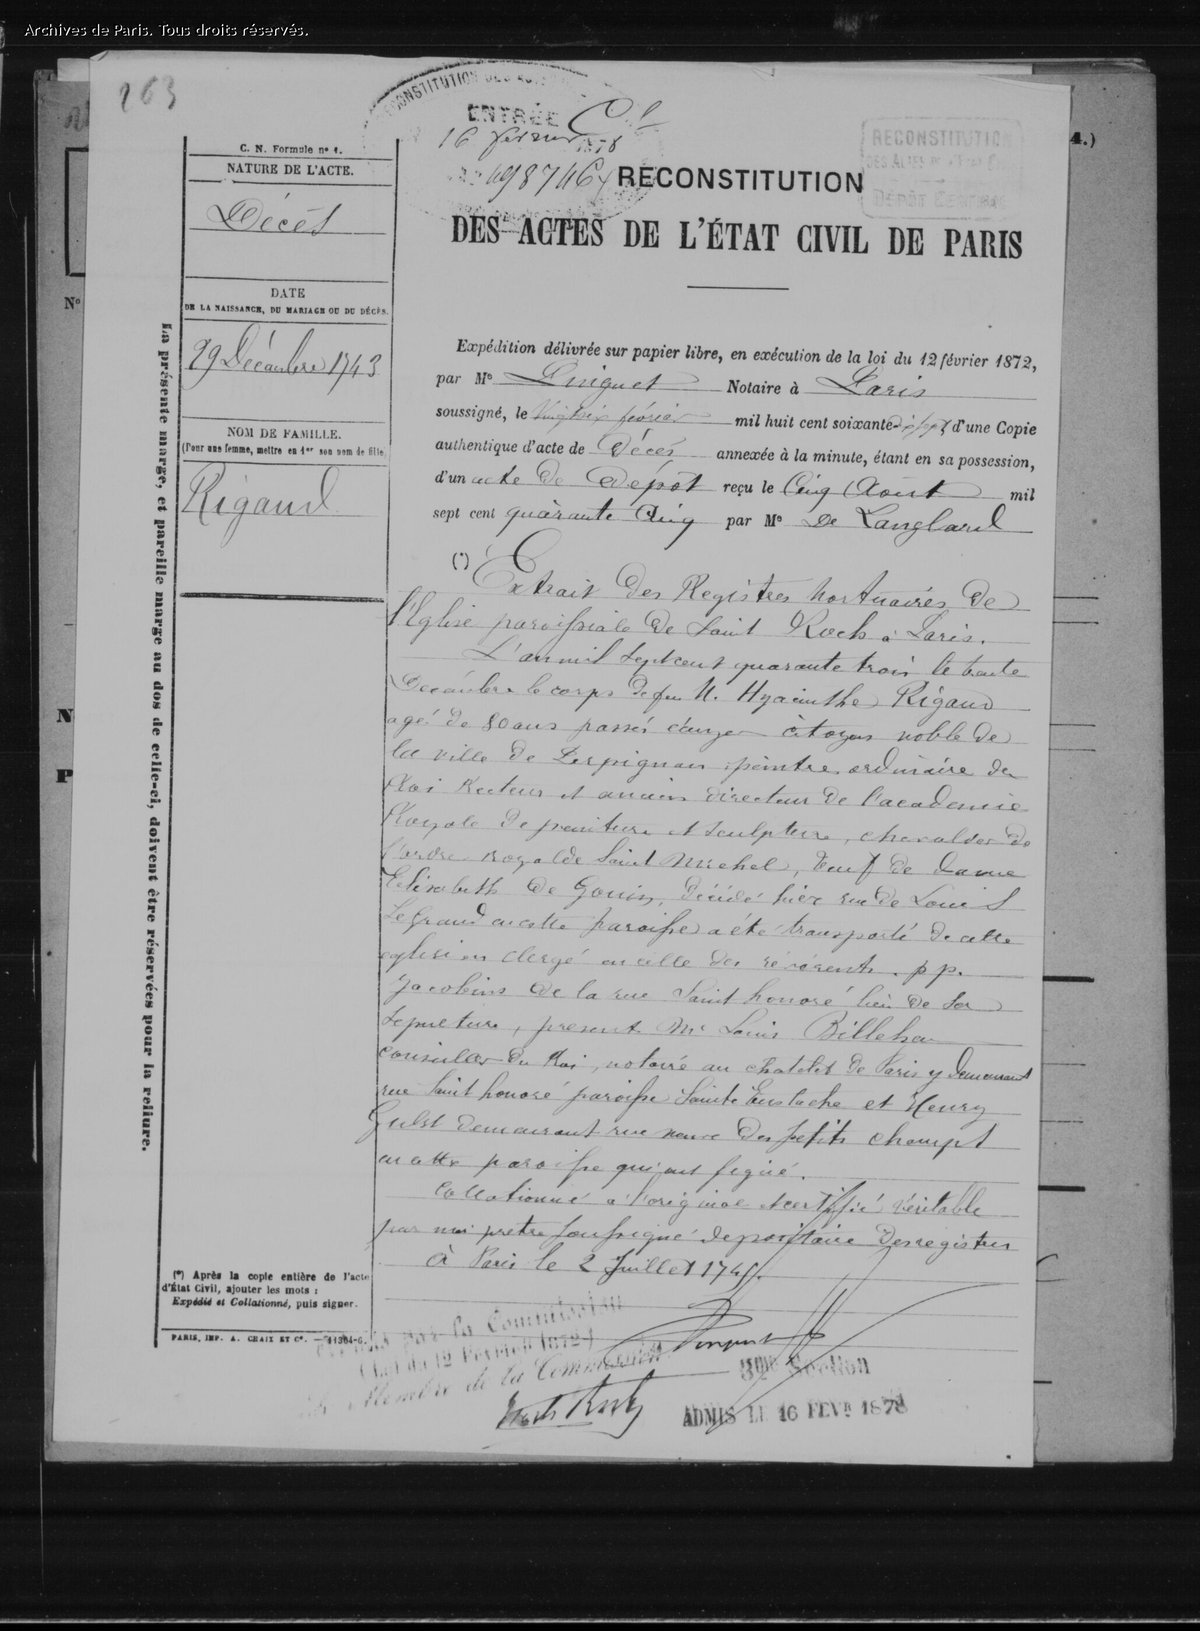 Archives de Paris. Tous droits réservés.
163
RECONSTITUTION DES ACTES
ENTRÉE
16 février 1878
498746
RECONSTITUTION
DES ACTES DE L'ÉTAT CIVIL
DÉPÔT CENTRAL
4.)
C. N. Formule nº 1.
NATURE DE L'ACTE.
Décès
DATE
DE LA NAISSANCE, DU MARIAGE OU DU DÉCÈS.
29 Décembre 1743
NOM DE FAMILLE.
(Pour une femme, mettre en 1er son nom de fille)
Rigaud
La présente marge, et pareille marge au dos de celle-ci, doivent être réservées pour la reliure.
Nº
N
P
RECONSTITUTION
DES ACTES DE L'ÉTAT CIVIL DE PARIS
Expédition délivrée sur papier libre, en exécution de la loi du 12 février 1872,
par Me Pinguet Notaire à Paris
soussigné, le février mil huit cent soixante dix sept d'une Copie
authentique d'acte de Décès annexée à la minute, étant en sa possession,
d'un acte de Dépôt reçu le Cinq Août mil
sept cent quarante Cinq par Me De Langlard
(*) Extrait des Registres mortuaires de
l'Eglise paroissiale de Saint Roch à Paris.
L'an mil sept cent quarante trois le trente
Décembre le corps de feu M. Hyacinthe Rigaud
agé de 80 ans passés citoyen noble de
la ville de Perpignan peintre ordinaire du
Roi Recteur et ancien directeur de l'academie
Royale de peinture et sculpture, chevalier de
l'ordre royal de Saint Michel, veuf de dame
Elisabeth de Gouin, décédé hier rue de Louis
Le Grand en cette paroisse a été transporté de cette
eglise en clergé en celle des révérents. pp.
Jacobins de la rue Saint honoré lieu de sa
sepulture, present Mr Louis Billeheu
conseiller du Roi, notaire au chatelet de Paris y demeurant
rue Saint honoré paroisse Sainte Eustache et Henry
demeurant rue neuve des petits champs
en cette paroisse qui ont signé.
Collationné à l'original et certifié véritable
par moi prêtre soussigné depositaire des registres
à Paris le 2 Juillet 1745.
(*) Après la copie entière de l'acte
d'État Civil, ajouter les mots :
Expédié et Collationné, puis signer.
PARIS, IMP. A. CHAIX ET Cⁱᵉ. — 11364-6.
par la Commission
(Loi du 12 Février 1872)
Le Membre de la Commission
3me Section
ADMIS LE 16 FEVR 1878